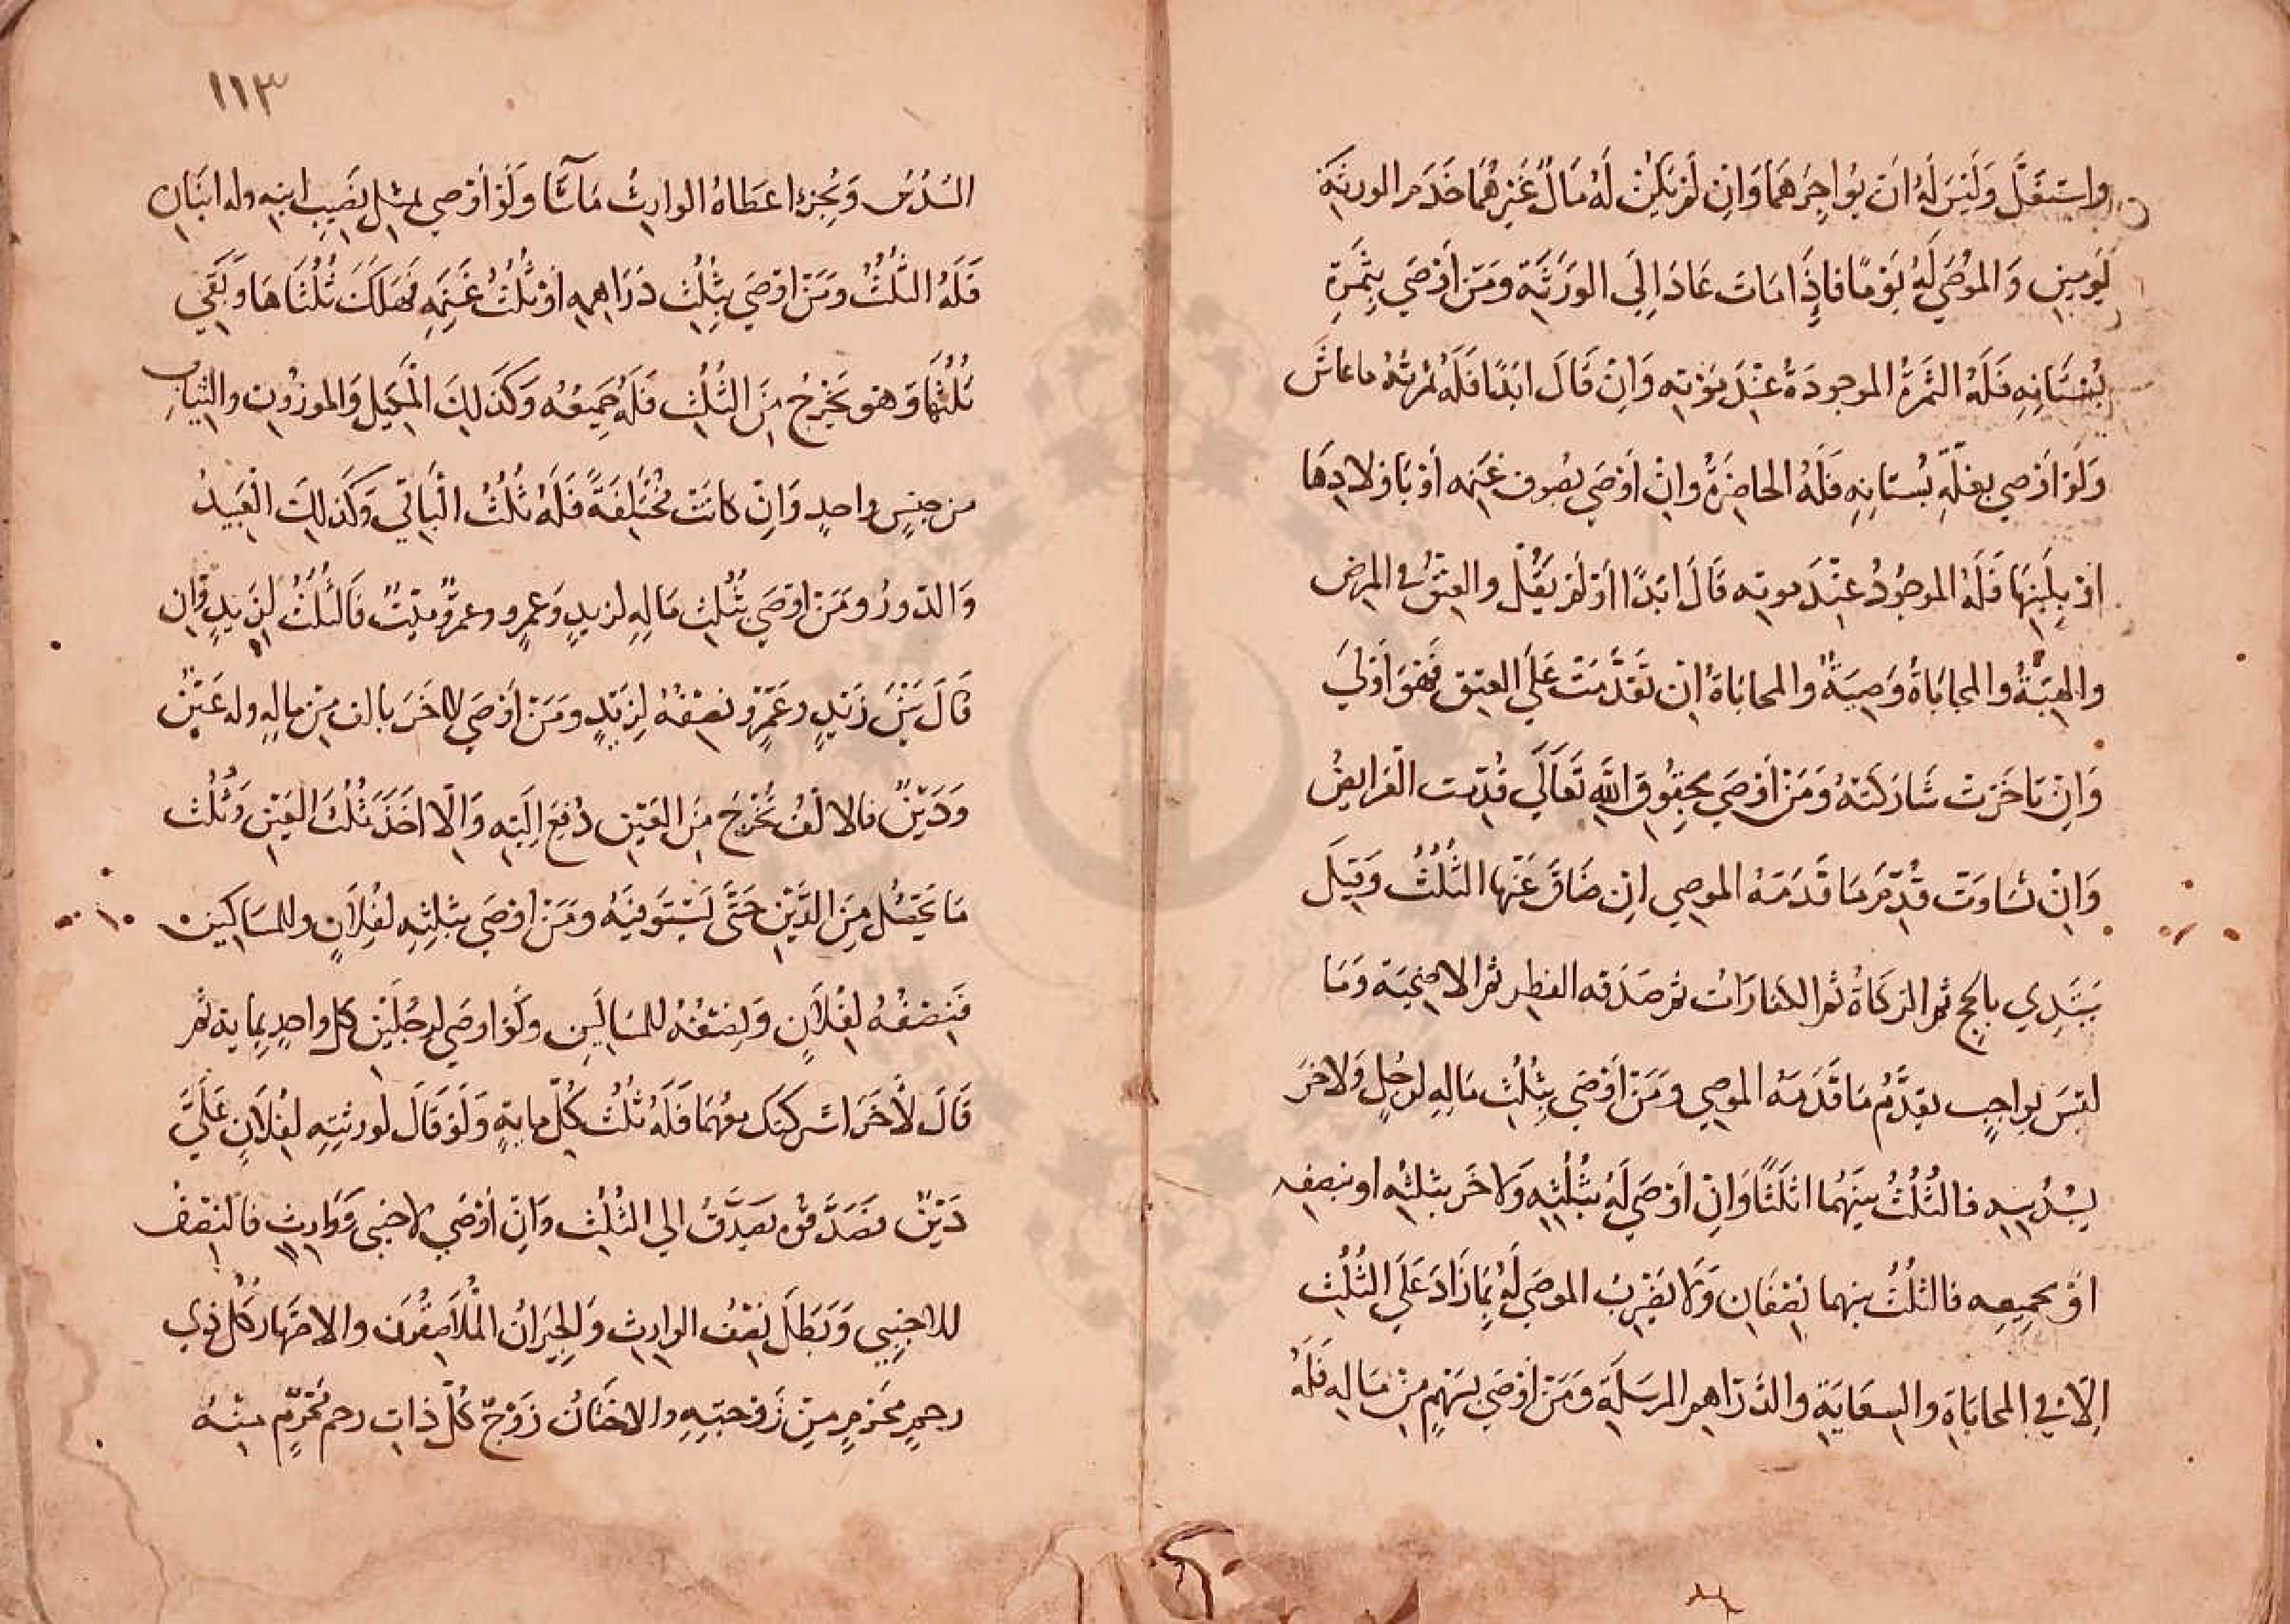 واستغل وَلَيسَ لَهُ ان يؤاجِرَهمَا وَاِن لَم يَكنْ لَهُ مَالٌ غَيرهُمَا خَدَم الورثَة
يَومينِ وَالموُصَي لَهُ يَومًا فاِذَا مَاتَ عَادَ اِلَي الورَثَة وَمَن أوْصَي بِثَمرةِ
بُستَانِهِ فلَهُ الثمَرةُ الموجودَةُ عِنْدَ مَوْتِهِ وَاِنْ قَالَ ابَدًا فلَهُ ثمرتُهُ ماعَاشَ
وَلَوْ اَوْصي بِغلّةِ بُستانِهِ فلَهُ الحاضِرَةُ وانْ أوْصَي بصُوفِ غنَمِه أوْ بأولادِهَا
اوْ بِلَبَنِهَا فَلَهُ الموجُودُ عِنْدَ موتِه قَالَ ابَدًا اَوْ لَم يَقُلْ والعِتقُ في المرض
والهِبَةُ والمحابَاةُ وَصِيَةٌ والمحابَاةُ اِن تَقَدَّمَتْ عَلَي العِتقِ فَهوَ أوْليَ
وَاِنْ تاخَرَت شَاركَتهُ وَمَنْ أوْصَي بحِقوُقِ اللهِ تَعَالَي قُدّمت الفَرايضُ
وَاِنْ تسَاوَتْ قُدّمَ مَا قَدَمَهُ الموصِي اِن ضَاقَ عَنْها الثلُثُ وَقِيلَ
يَبتَدِي بالحج ثم الزكَاةُ ثم الكفارَاتُ ثم صَدَقه الفطر ثم الاضحيَة وَمَا
ليسَ بواجِبٍ يقدَّمُ مَا قَدَمَهُ الموصِي وَمَنْ أوْصَي بِثلُثِ مَالِهِ لرجُلٍ وَلاخرَ
بِسُدُسِهِ فالثُلثُ بينَهُما اثلَاثًا وَاِنْ اَوْصَي لَهُ بثُلُثِه وَلاخَر بثلثِه او بنصفِه
اوْ بجمِيعِه فالثلُثُ بينهما نِصْفَان وَلَا يَضْرِبُ الموصَي لَهُ بِمَا زَادَ عَلَي الثُلُثِ
اِلّا في المحابَاةِ والسِعَايَةِ والدَرَاهِم المرسَلَةِ وَمَنْ أوْصَي بسَهْمٍ مِنْ مَالِهِ فَلَهُ
١١٣
السُدُسُ وَبجُزءٍ اعطَاهُ الوارِثُ مَا شَا وَلَوْ أوْصي بمثِلِ نصِيبِ ابنِهِ وله ابنَانِ
فَلَهُ الثُلُثُ وَمَنْ اوْصَي بِثُلُثِ دَرَاهِمِهِ اوْ ثُلُثُ غَنَمِهِ فهَلَكَ ثُلُثَاهَا وَبَقيَ
ثُلُثُهَا وَهو يَخْرُجُ مِنَ الثُلُثِ فَلَهُ جَمِيعُهُ وَكَذَلِكَ المَكِيلِ وَالموزُونِ والثيابِ
من جِنسٍ واحدٍ وَاِنْ كانَتْ مُخْتَلِفَةً فَلَهُ ثُلُثُ الْبَاقي وَكَذلِكَ الْعَبيدُ
وَالدّورُ وَمَنْ اوْصَي بثُلُثِ مَالِهِ لزيدٍ وَعمرٍو وعمرٌو مَيّتٌ فَالثُلُثُ لِزَيدٍ وَاِن
قَالَ بَيْنَ زَيْدٍ وَعَمْرٍو نِصفُهُ لِزَيْدٍ وَمَنْ أوْصَي لاخَرَ بالف مِنْ مالِهِ وله عَيْنٌ
وَدَيْنٌ فالالْفُ تُخْرَجُ مِنَ العَيْنِ دُفعَ اِلَيْهِ وَاِلّا اخَذَ ثلُثَ العَيْنِ وَثُلُثَ
مَا يَحصُل مِنَ الدَّيْنِ حَتَّي يَسْتَوفيَهُ وَمَنْ اوْصَي بثلثِهِ لفُلَانٍ وللمسَاكينِ
فَنِصْفُهُ لِفُلَانٍ وَنِصْفُهُ للمسَاكِين ولَوْ اوصَي لِرجُلَيْن كل واحِدٍ بِماية ثم
قَالَ لاخَرَ اشركتك معهُمَا فَلَهُ ثُلُثُ كُلّ مايةٍ وَلَوْ قَالَ لورثتِهِ لفُلَانٍ عَلَيَّ
دَيْنٌ فصَدَّقوْهُ يصَدَّقُ الي الثلُثِ وَاِنْ أوْصَي لاجنبي وَوَارِثٍ فالنصْفُ
للاجنِبِي وَيَبطَلُ نِصْفُ الوارِثِ وَالجِيرَانُ المُلَاصِقُونَ والاصَهَار كُل ذي
رحِمٍ مَحرَمٍ مِنْ زَوْجتِهِ والاخْتَانُ زَوْجُ كُلّ ذاتِ رحم مَحْرَمٍ مِنْهُ